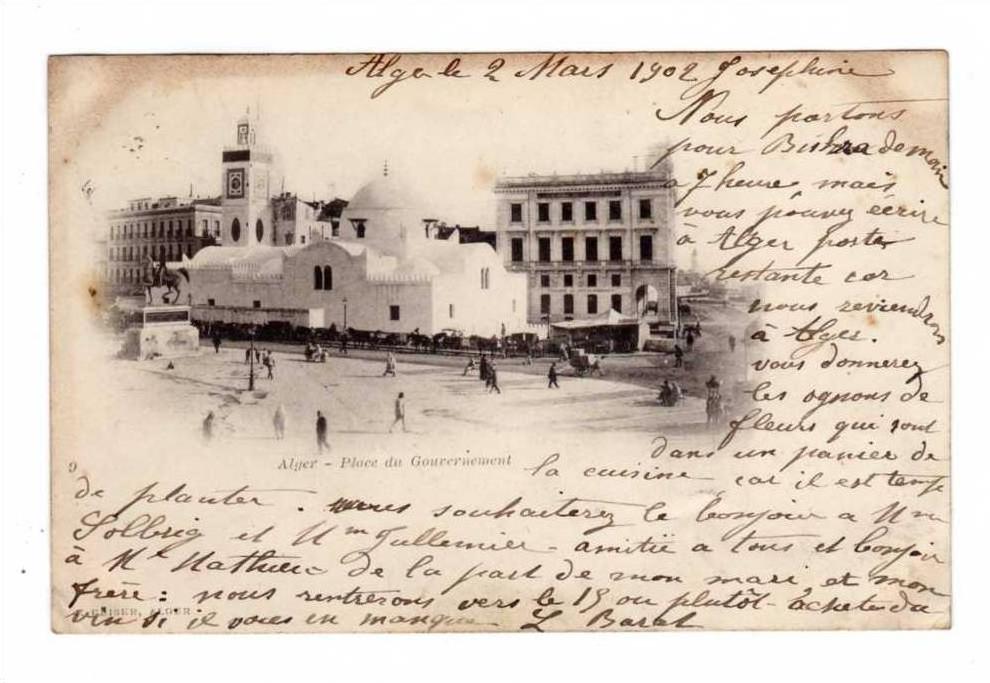 Alger le 2 Mars 1902 Josephine
Nous partons
pour Biskra demain
a 7 heure mais
vous pouvez écrire
à Alger poste
restante car
nous reviendrons
à Alger.
vous donnerez
les ognons de
fleurs qui sont
dans un panier de
la cuisine car il est temps
9
Alger - Place du Gouvernement
de planter. vous souhaiterez le bonjour a Mme
Solbrig et Mme - amitié a tous et bonjour
à Mr Mathieu de la part de mon mari et mon
frère : nous rentrerons vers le 15 ou plutôt - achete du
GEISER, ALGER
vin si il vous en manque L Barat